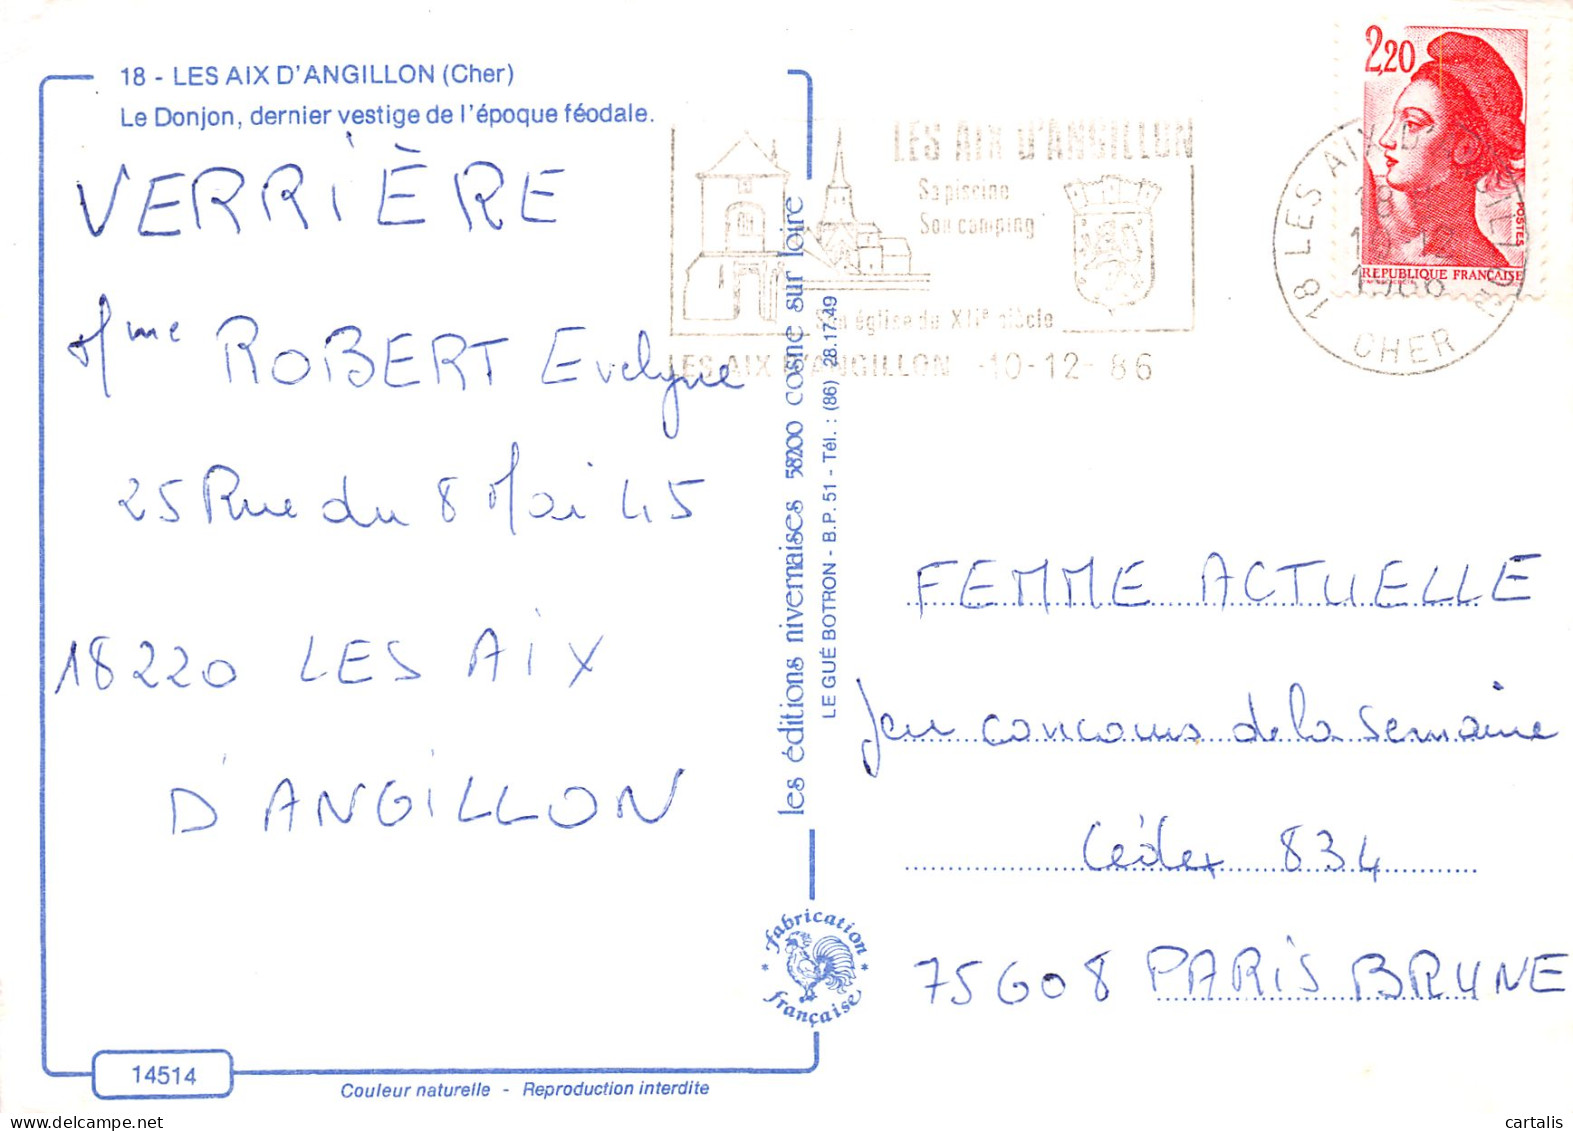 18 - LES AIX D'ANGILLON (Cher)
Le Donjon, dernier vestige de l'époque féodale.
VERRIÈRE
Mme ROBERT Evelyne
25 Rue du 8 Mai 45
18220 LES AIX
D'ANGILLON
14514
Couleur naturelle - Reproduction interdite
les éditions nivernaises 58200 cosne sur loire
LE GUÉ BOTRON - B.P. 51 - Tél. : (86) 28.17.49
Fabrication
française
LES AIX D'ANGILLON
Sa piscine
Son camping
Son église du XIIe siècle
LES AIX D'ANGILLON -10-12- 86
2,20
POSTES
REPUBLIQUE FRANÇAISE
18 LES AIX D'ANGILLON
18 H
10-12
1986
CHER
FEMME ACTUELLE
Jeu concours de la semaine
Cédex 834
75608 PARIS BRUNE
cartalis